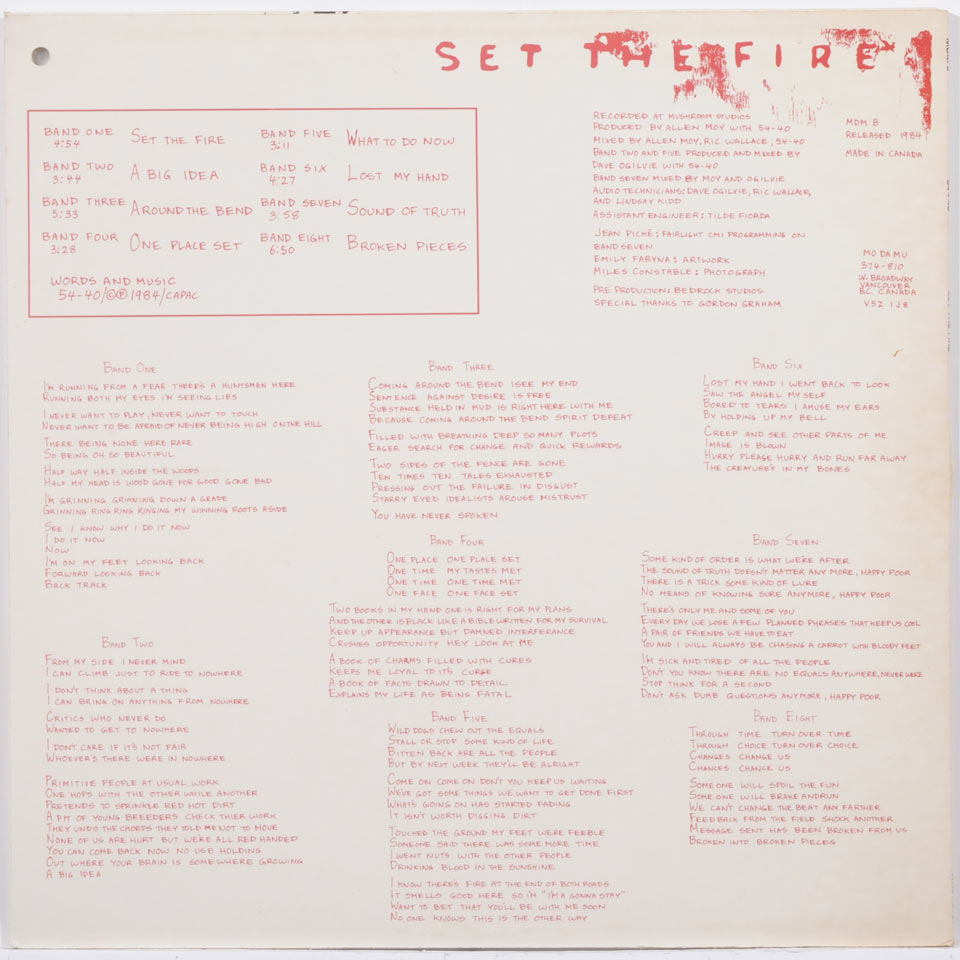 SET THE FIRE
BAND ONE 4:54 SET THE FIRE
BAND TWO 3:44 A BIG IDEA
BAND THREE 5:33 AROUND THE BEND
BAND FOUR 3:28 ONE PLACE SET
BAND FIVE 3:11 WHAT TO DO NOW
BAND SIX 4:27 LOST MY HAND
BAND SEVEN 3:58 SOUND OF TRUTH
BAND EIGHT 6:50 BROKEN PIECES
WORDS AND MUSIC
54-40/©℗1984/CAPAC
RECORDED AT MUSHROOM STUDIOS
PRODUCED BY ALLEN MOY WITH 54-40
MIXED BY ALLEN MOY, RIC WALLACE, 54-40
BAND TWO AND FIVE PRODUCED AND MIXED BY
DAVE OGILVIE WITH 54-40
BAND SEVEN MIXED BY MOY AND OGILVIE
AUDIO TECHNICIANS: DAVE OGILVIE, RIC WALLACE,
AND LINDSAY KIDD
ASSISTANT ENGINEER: TILDE FIORDA
JEAN PICHÉ: FAIRLIGHT CMI PROGRAMMING ON
BAND SEVEN
EMILY FARYNA: ARTWORK
MILES CONSTABLE: PHOTOGRAPH
PRE PRODUCTION: BEDROCK STUDIOS
SPECIAL THANKS TO GORDON GRAHAM
MDM 8
RELEASED 1984
MADE IN CANADA
MO DA MU
374-810
W. BROADWAY
VANCOUVER
BC. CANADA
V5Z 1J8
BAND ONE
I'M RUNNING FROM A FEAR THERE'S A HUNTSMAN HERE
RUNNING BOTH MY EYES I'M SEEING LIES
I NEVER WANT TO PLAY, NEVER WANT TO TOUCH
NEVER WANT TO BE AFRAID OF NEVER BEING HIGH ON THE HILL
THERE BEING NONE HERE RARE
SO BEING OH SO BEAUTIFUL
HALF WAY HALF INSIDE THE WOODS
HALF MY HEAD IS WOOD GONE FOR GOOD GONE BAD
I'M GRINNING GRINNING DOWN A GRADE
GRINNING RING RING RINGING MY WINNING ROOTS ASIDE
SEE I KNOW WHY I DO IT NOW
I DO IT NOW
NOW
I'M ON MY FEET LOOKING BACK
FORWARD LOOKING BACK
BACK TRACK
BAND TWO
FROM MY SIDE I NEVER MIND
I CAN CLIMB JUST TO RIDE TO NOWHERE
I DON'T THINK ABOUT A THING
I CAN BRING ON ANYTHING FROM NOWHERE
CRITICS WHO NEVER DO
WANTED TO GET TO NOWHERE
I DON'T CARE IF IT'S NOT FAIR
WHOEVER'S THERE WERE IN NOWHERE
PRIMITIVE PEOPLE AT USUAL WORK
ONE HOPS WITH THE OTHER WHILE ANOTHER
PRETENDS TO SPRINKLE RED HOT DIRT
A PIT OF YOUNG BREEDERS CHECK THIER WORK
THEY UNDO THE CHORDS THEY TOLD ME NOT TO MOVE
NONE OF US ARE HURT BUT WE'RE ALL RED HANDED
YOU CAN COME BACK NOW NO USE HOLDING
OUT WHERE YOUR BRAIN IS SOMEWHERE GROWING
A BIG IDEA
BAND THREE
COMING AROUND THE BEND I SEE MY END
SENTENCE AGAINST DESIRE IS FREE
SUBSTANCE HELD IN MUD IS RIGHT HERE WITH ME
BECAUSE COMING AROUND THE BEND SPIRIT DEFEAT
FILLED WITH BREATHING DEEP SO MANY PLOTS
EAGER SEARCH FOR CHANGE AND QUICK REWARDS
TWO SIDES OF THE FENCE ARE GONE
TEN TIMES TEN TALES EXHAUSTED
PRESSING OUT THE FAILURE IN DISGUST
STARRY EYED IDEALISTS AROUSE MISTRUST
YOU HAVE NEVER SPOKEN
BAND FOUR
ONE PLACE ONE PLACE SET
ONE TIME MY TASTES MET
ONE TIME ONE TIME MET
ONE FACE ONE FACE SET
TWO BOOKS IN MY HAND ONE IS RIGHT FOR MY PLANS
AND THE OTHER IS BLACK LIKE A BIBLE WRITTEN FOR MY SURVIVAL
KEEP UP APPEARANCE BUT DAMNED INTERFERANCE
CRUSHES OPPORTUNITY HEY LOOK AT ME
A BOOK OF CHARMS FILLED WITH CURES
KEEPS ME LOYAL TO IT'S CURSE
A BOOK OF FACTS DRAWN TO DETAIL
EXPLAINS MY LIFE AS BEING FATAL
BAND FIVE
WILD DOGS CHEW OUT THE EQUALS
STALL OR STOP SOME KIND OF LIFE
BITTEN BACK ARE ALL THE PEOPLE
BUT BY NEXT WEEK THEY'LL BE ALRIGHT
COME ON COME ON DON'T YOU KEEP US WAITING
WE'VE GOT SOME THINGS WE WANT TO GET DONE FIRST
WHAT'S GOING ON HAS STARTED FADING
IT ISN'T WORTH DIGGING DIRT
TOUCHED THE GROUND MY FEET WERE FEEBLE
SOMEONE SAID THERE WAS SOME MORE TIME
I WENT NUTS WITH THE OTHER PEOPLE
DRINKING BLOOD IN THE SUNSHINE
I KNOW THERE'S FIRE AT THE END OF BOTH ROADS
IT SMELLS GOOD HERE SO I'M "I'M A GONNA STAY"
WANT TO BET THAT YOU'LL BE WITH ME SOON
NO ONE KNOWS THIS IS THE OTHER WAY
BAND SIX
LOST MY HAND I WENT BACK TO LOOK
SAW THE ANGEL MY SELF
BORED TO TEARS I AMUSE MY EARS
BY HOLDING UP MY BELL
CREEP AND SEE OTHER PARTS OF ME
IMAGE IS BLOWN
HURRY PLEASE HURRY AND RUN FAR AWAY
THE CREATURE'S IN MY BONES
BAND SEVEN
SOME KIND OF ORDER IS WHAT WE'RE AFTER
THE SOUND OF TRUTH DOESN'T MATTER ANY MORE, HAPPY POOR
THERE IS A TRICK SOME KIND OF LURE
NO MEANS OF KNOWING SURE ANYMORE, HAPPY POOR
THERE'S ONLY ME AND SOME OF YOU
EVERY DAY WE LOSE A FEW PLANNED PHRASES THAT KEEP US COOL
A PAIR OF FRIENDS WE HAVE TO EAT
YOU AND I WILL ALWAYS BE CHASING A CARROT WITH BLOODY FEET
I'M SICK AND TIRED OF ALL THE PEOPLE
DON'T YOU KNOW THERE ARE NO EQUALS ANYWHERE, NEVER WERE
STOP THINK FOR A SECOND
DON'T ASK DUMB QUESTIONS ANYMORE, HAPPY POOR
BAND EIGHT
THROUGH TIME TURN OVER TIME
THROUGH CHOICE TURN OVER CHOICE
CHANGES CHANGE US
CHANCES CHANGE US
SOME ONE WILL SPOIL THE FUN
SOME ONE WILL BRAKE AND RUN
WE CAN'T CHANGE THE BEAT ANY FARTHER
FEEDBACK FROM THE FIELD SHOCK ANOTHER
MESSAGE SENT HAS BEEN BROKEN FROM US
BROKEN INTO BROKEN PIECES